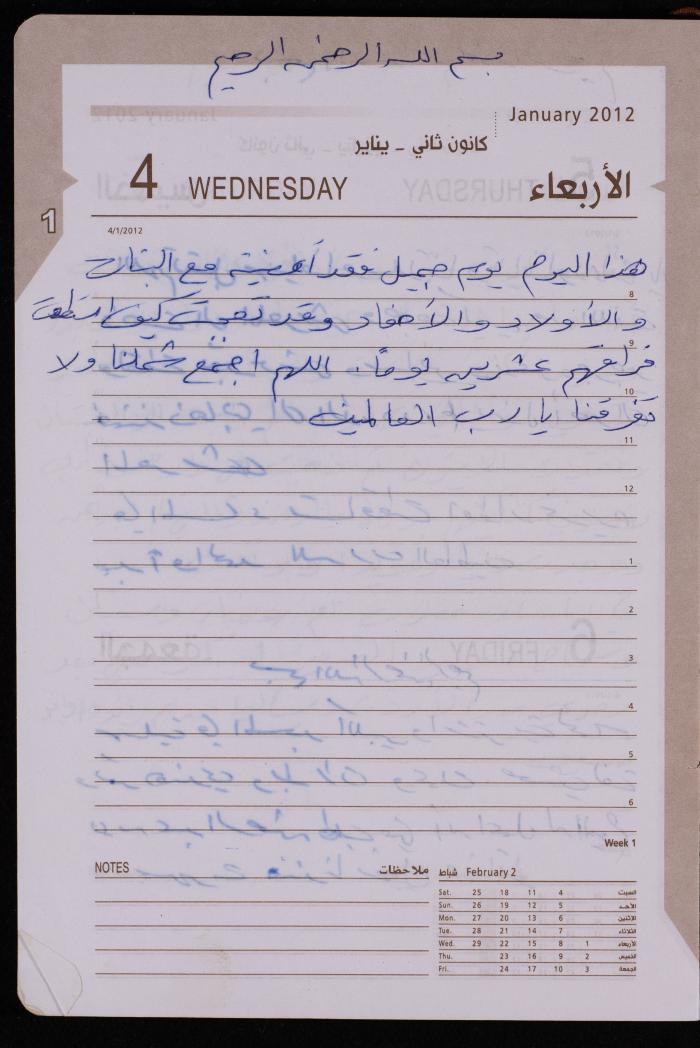 بسم الله الرحمن الرحيم
January 2012
كانون ثاني - يناير
4 WEDNESDAY الأربعاء
1
4/1/2012
هذا اليوم يوم جميل فقد أمضيته مع البنات
8
والأولاد والأحفاد وقد تعجبت كيف استطعت
9
فراقهم عشرين يوماً. اللهم اجمع شملنا ولا
10
تفرقنا يا رب العالمين
11
12
1
2
3
4
5
6
Week 1
NOTES ملاحظات
February 2 شباط
Sat. 25 18 11 4 السبت
Sun. 26 19 12 5 الأحد
Mon. 27 20 13 6 الإثنين
Tue. 28 21 14 7 الثلاثاء
Wed. 29 22 15 8 1 الأربعاء
Thu. 23 16 9 2 الخميس
Fri. 24 17 10 3 الجمعة